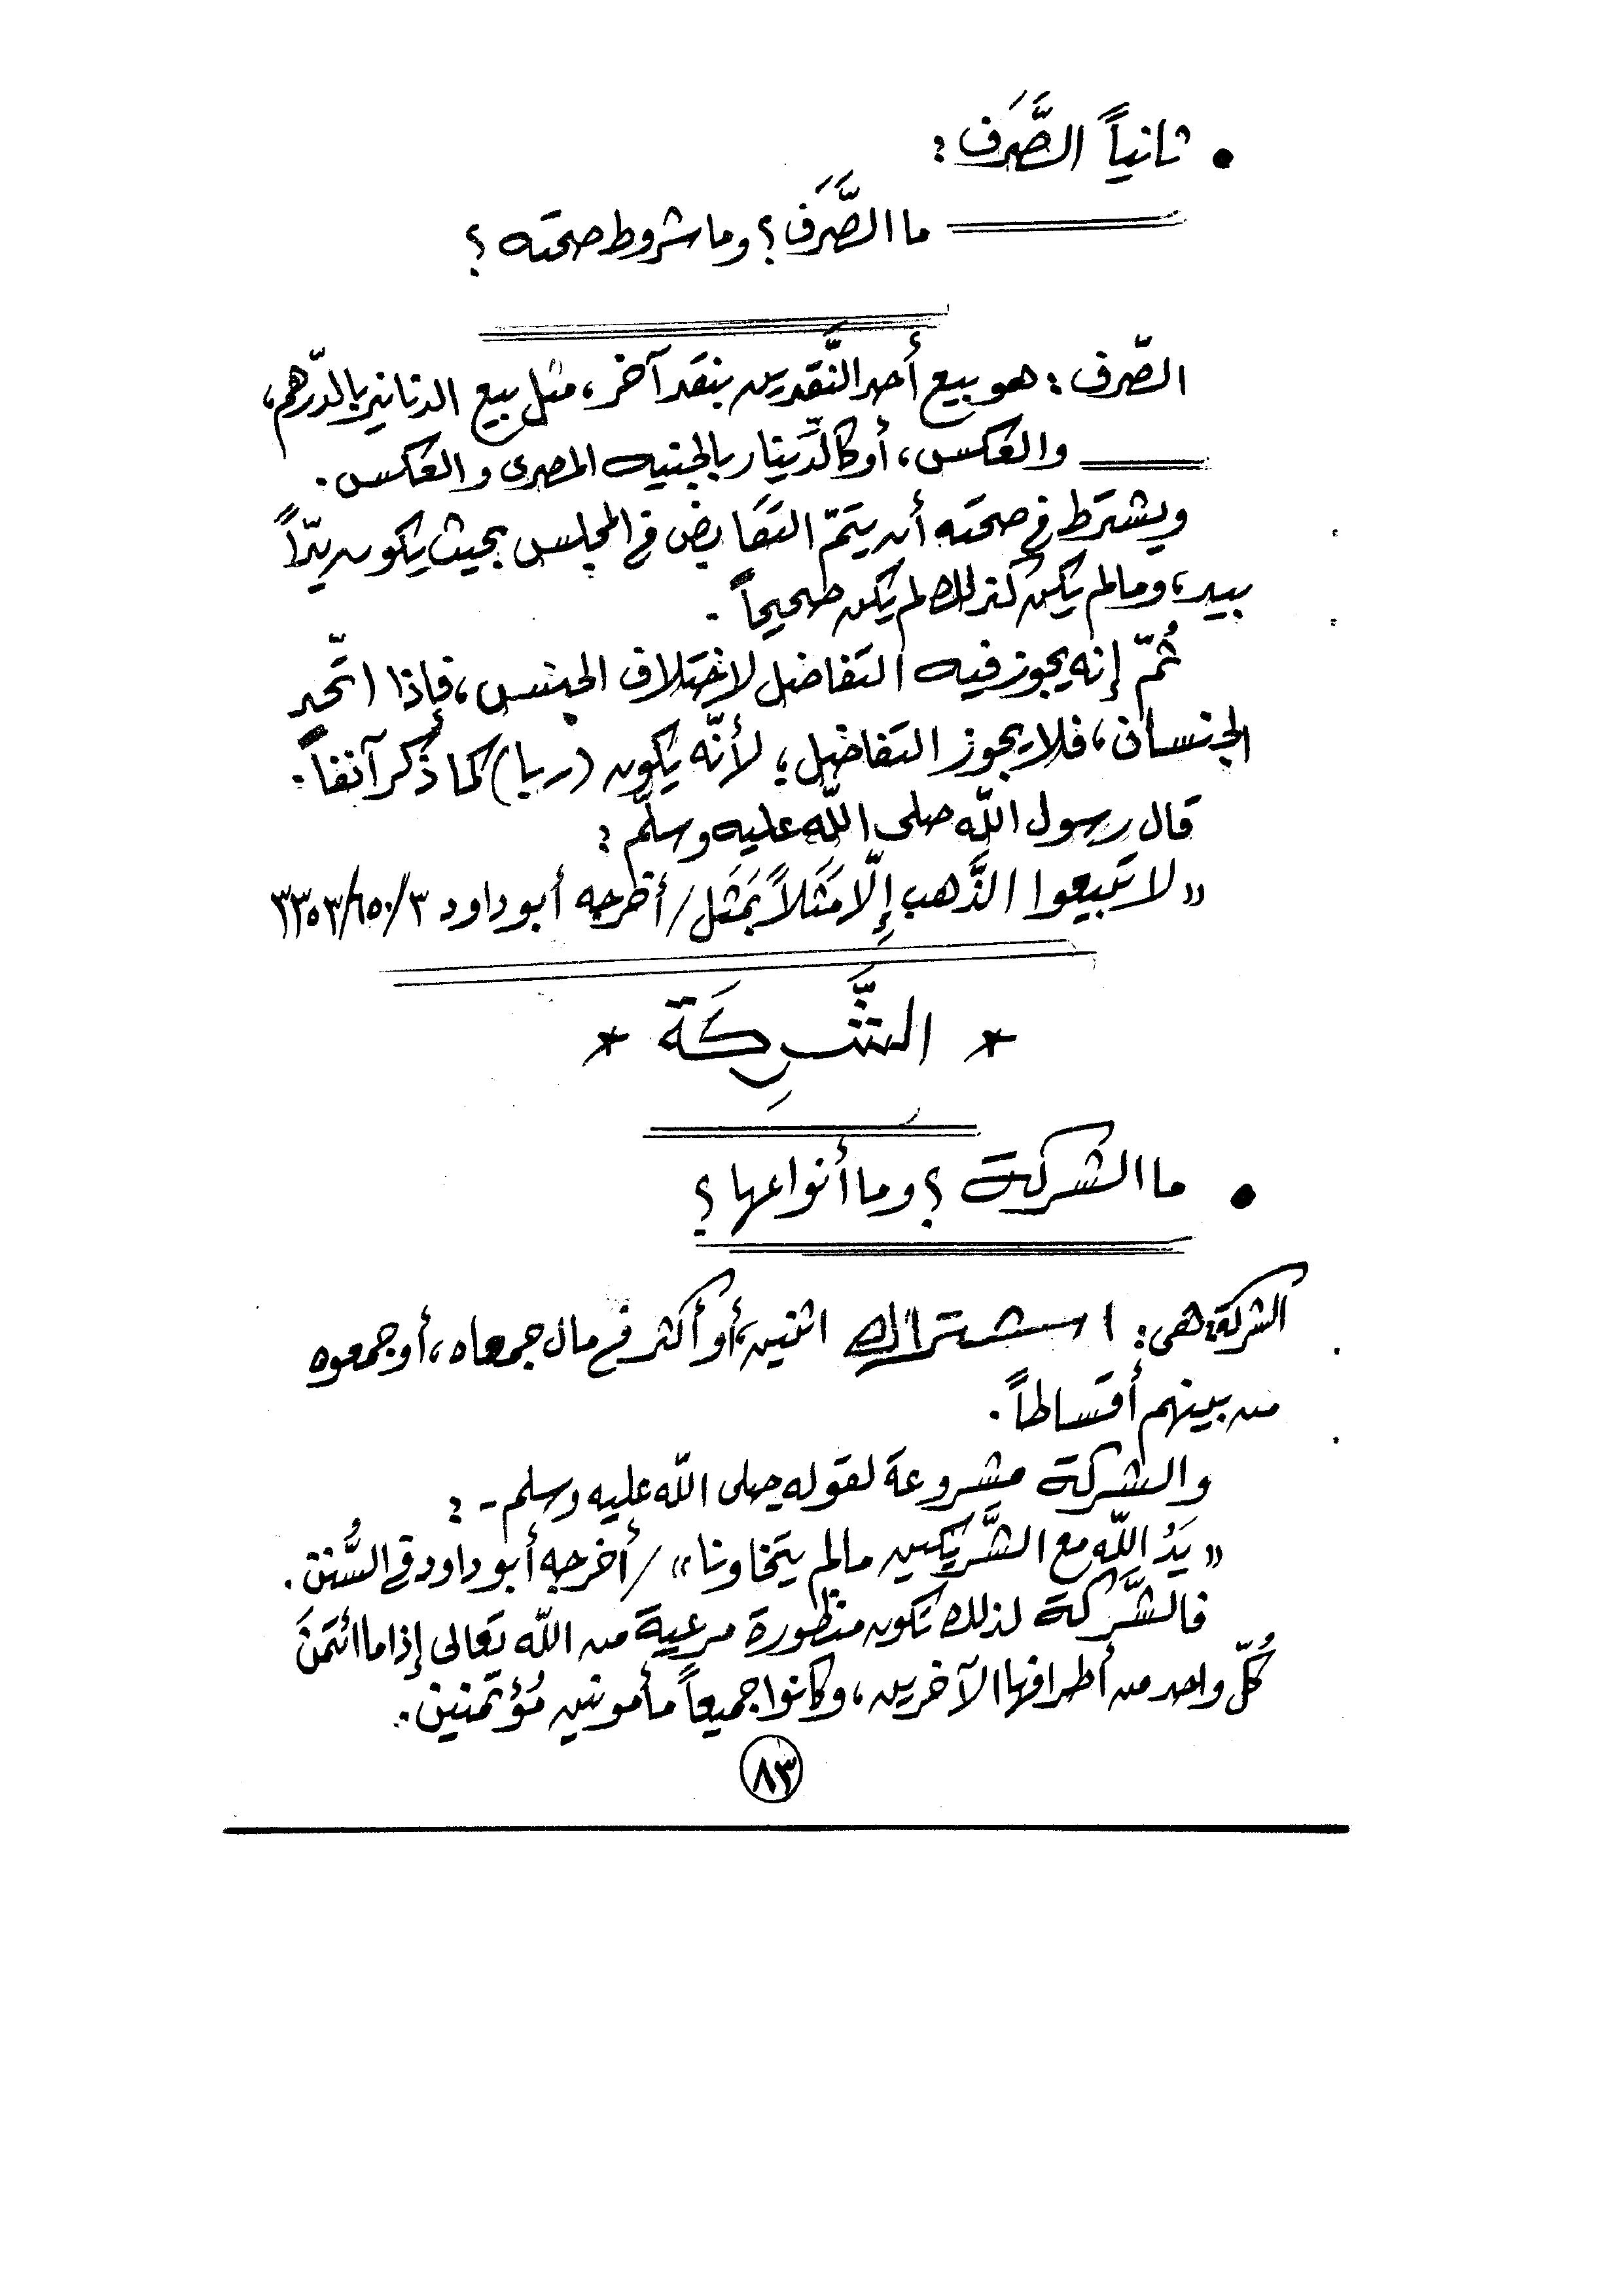 • ثانياً الصَّرَف:
ما الصَّرَف؟ وما شروط صحته؟
الصّرف: هو بيع أحد النَّقدين بنقد آخر، مثل بيع الدنانير بالدّرهم،
والعكس، أو كالدِّينار بالجنيه المصرى والعكس.
ويشترط فى صحته أن يتمّ التقابض فى المجلس بحيث يكون يدّاً
بيد، ومالم يكن كذلك لم يكن صحيحاً.
ثُمّ إنه يجوز فيه التفاضل لاختلاف الجنس، فإذا اتّحد
الجنسان، فلا يجوز التفاضل؛ لأنّه يكون (ربا) كما ذُكر آنفاً.
قال رسول اللّه صلى اللّه عليه وسلّم:
«لا تَبيعوا الذَّهب إِلّا مَثَلاً بَمَثَل/ أخرجه أبو داود ٣/٦٥٠/٣٣٥٣
* الشَّرِكَة *
• ما الشركة؟ وما أنواعها؟
الشركة هى: اشتراك اثنين، أو أكثر فى مال جمعاه، أو جمعوه
من بينهم أقساطاً.
والشركة مشروعة لقوله صلى اللّه عليه وسلم-:
«يَدُ اللّه مع الشَّريكين مالم يتخاونا» / أخرجه أبو داود فى السُّنن.
فالشَّركة لذلك تكون منظورة مرعية من اللّه تعالى إذا ما ائتمنَ
كُلّ واحد من أطرافها الآخرين، وكانوا جميعاً مأمونين مُؤتمنين.
٨٣